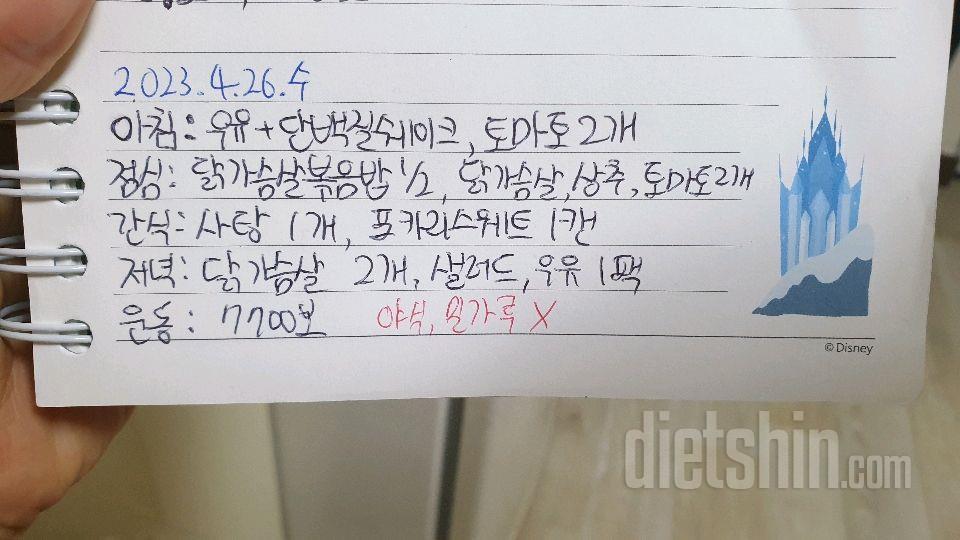 2023.4.26.수
아침: 우유+단백질쉐이크, 토마토 2개
점심: 닭가슴살볶음밥 1/2, 닭가슴살, 상추, 토마토2개
간식: 사탕 1개, 포카리스웨트 1캔
저녁: 닭가슴살 2개, 샐러드, 우유 1팩
운동: 7700보 야식, 밀가루 X
© Disney
dietshin.com